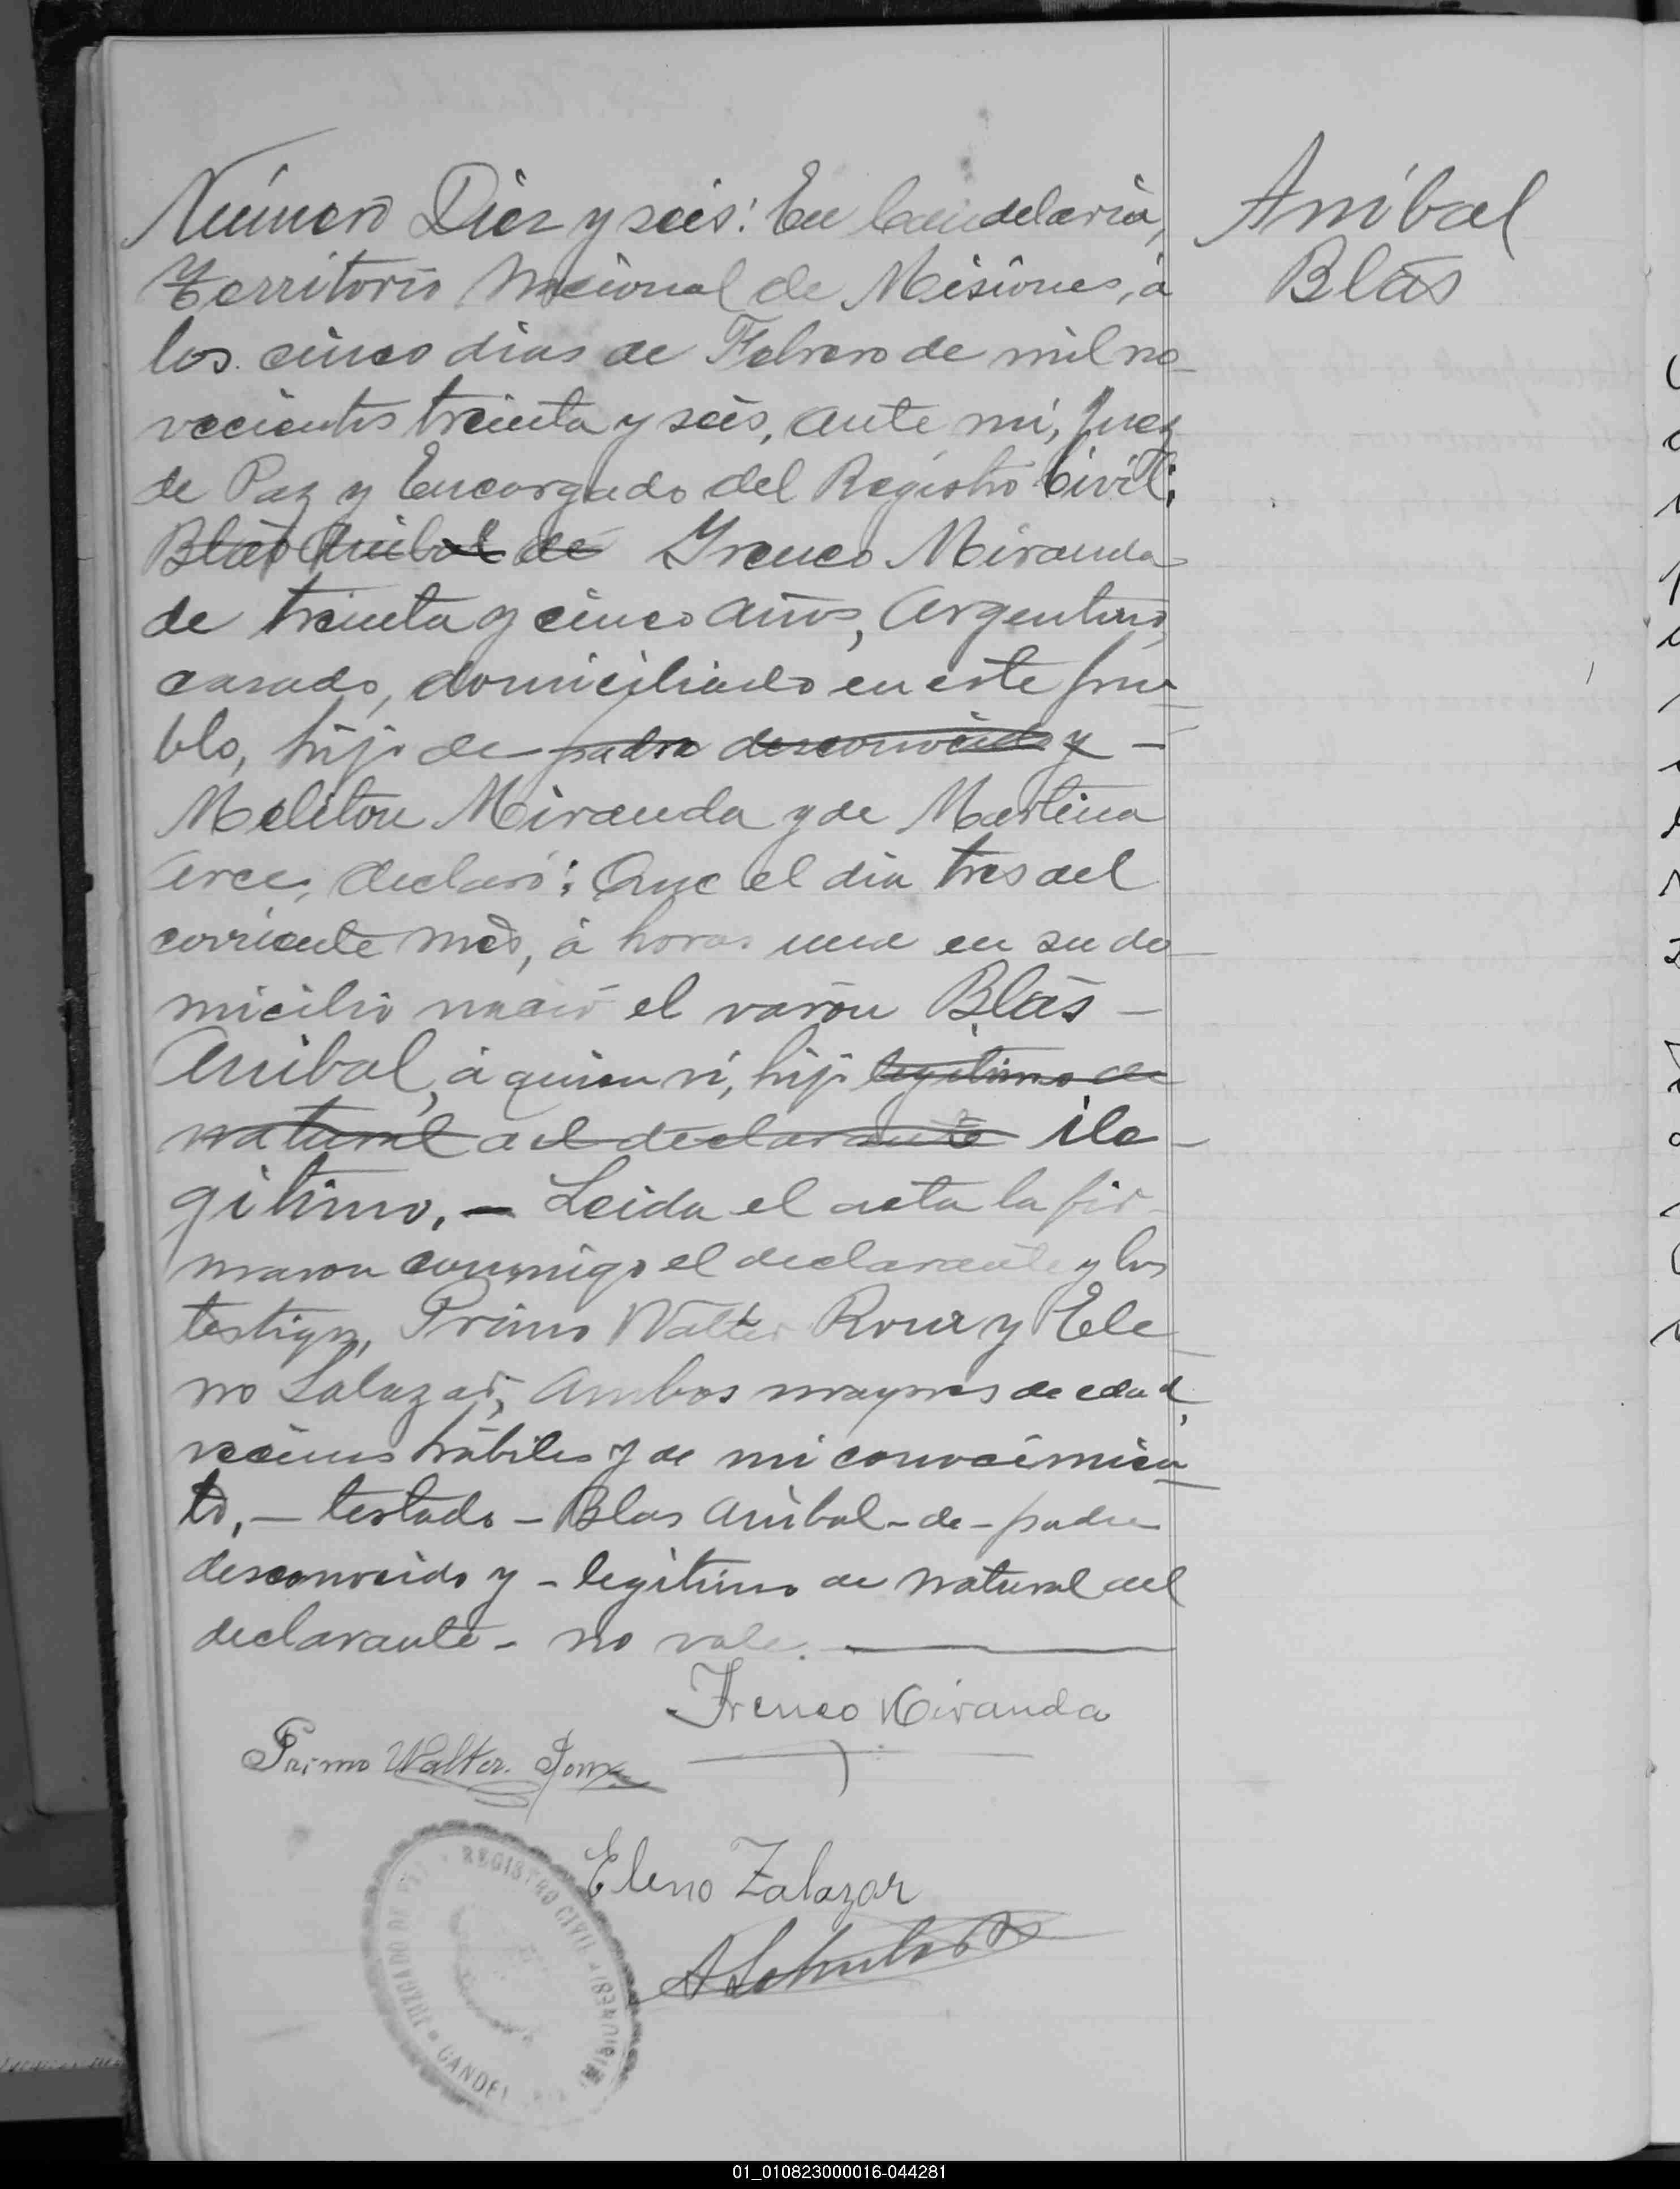 Número Diez y seis: En Candelaria,
Territorio Nacional de Misiones, á
los cinco dias de Febrero de mil no-
vecientos treinta y seis, ante mi, Juez
de Paz y Encargado del Registro Civil;
Blás Anibal de Ireneo Miranda
de treinta y cinco años, Argentino,
casado, domiciliado en este pue-
blo, hijo de padre desconocido y -
Meliton Miranda y de Martina
Arce, declaró: Que el dia tres del
corriente mès, á horas una en su do-
micilio nació el varón Blás -
Anibal, á quien ví, hijo legitimo de
natural del declarante ile-
gitimo. - Leida el acta la fir-
maron conmigo el declarante y los
testigos, Primo Walter Roux y Ele-
no Salazar, Ambos mayores de edad,
vecinos hábiles y de mi conocimien-
to. - testado - Blas Anibal - de - padre
desconocido y - legitimo de natural del
declarante - no vale.
Ireneo Miranda
Primo Walter
Eleno Zalazar
REGISTRO CIVIL
JUZGADO DE
CANDEL
Anibal
Blás
01_010823000016-044281